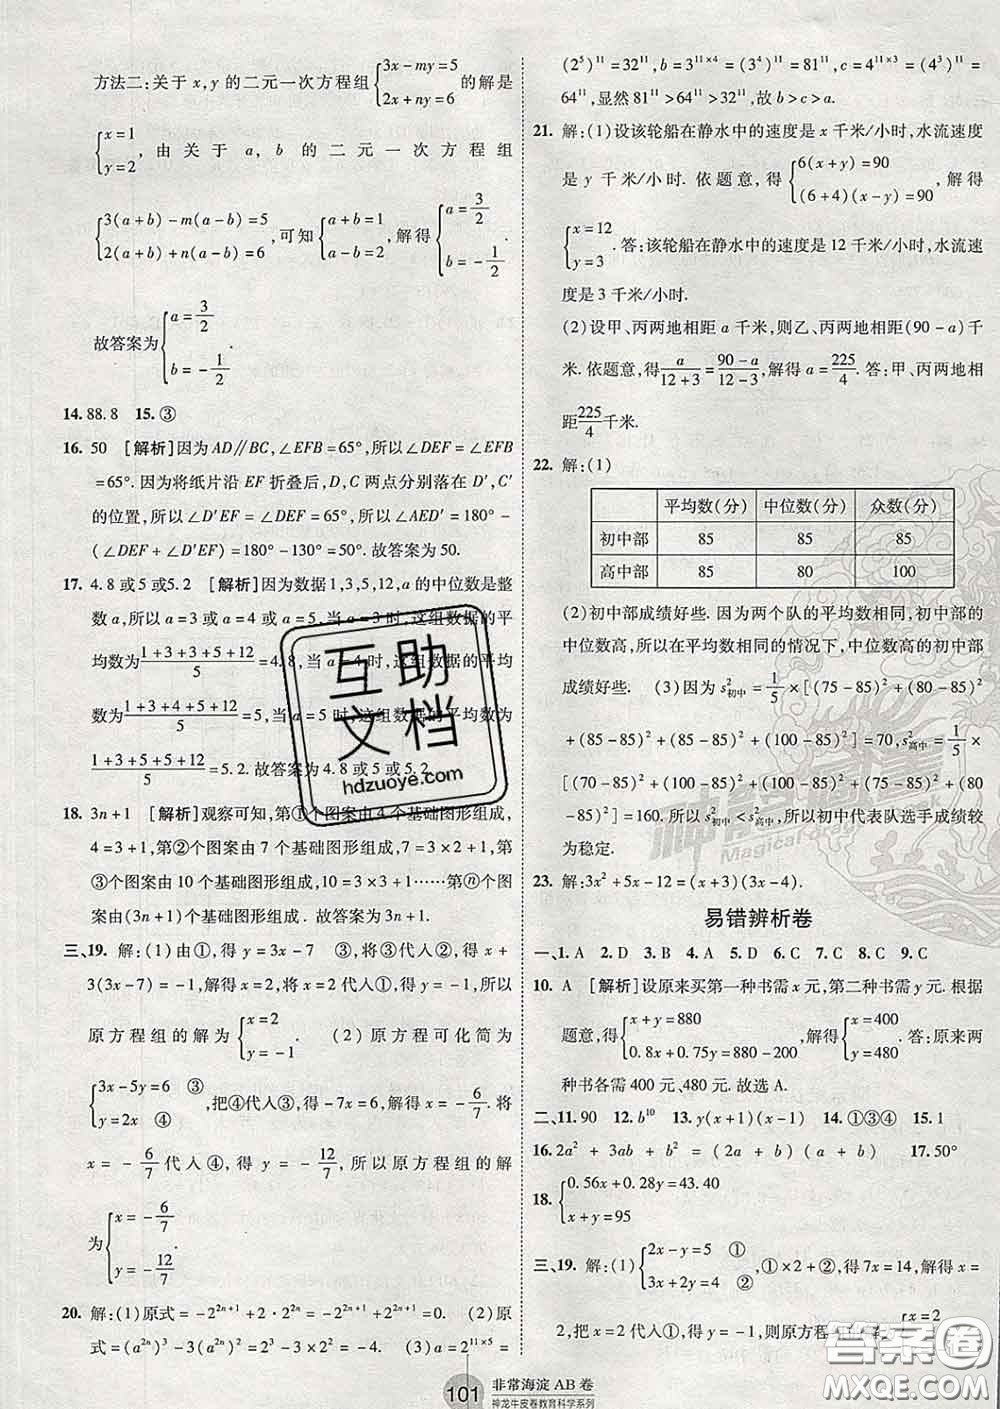 方法二:关于 x,y 的二元一次方程组{3x-my=5 2x+ny=6 的解是
{x=1 y=2, 由关于 a, b 的二元一次方程组
{3(a+b)-m(a-b)=5 2(a+b)+n(a-b)=6, 可知{a+b=1 a-b=2, 解得{a=3/2 b=-1/2.
故答案为{a=3/2 b=-1/2
14. 88.8 15. ③
16. 50 [解析]因为 AD∥BC,∠EFB=65°,所以∠DEF=∠EFB
=65°.因为将纸片沿 EF 折叠后,D,C 两点分别落在 D′,C′
的位置,所以∠D′EF=∠DEF=65°,所以∠AED′=180°-
(∠DEF+∠D′EF)=180°-130°=50°.故答案为 50.
17. 4.8 或 5 或 5.2 [解析]因为数据 1,3,5,12,a 的中位数是整
数 a,所以 a=3 或 a=4 或 a=5,当 a=3 时,这组数据的平
均数为(1+3+3+5+12)/5=4.8,当 a=4 时,这组数据的平均
数为(1+3+4+5+12)/5=5,当 a=5 时,这组数据的平均数为
(1+3+5+5+12)/5=5.2.故答案为 4.8 或 5 或 5.2.
18. 3n+1 [解析]观察可知,第①个图案由 4 个基础图形组成,
4=3+1,第②个图案由 7 个基础图形组成,7=3×2+1,第
③个图案由 10 个基础图形组成,10=3×3+1……第ⓝ个图
案由(3n+1)个基础图形组成.故答案为 3n+1.
三、19. 解:(1)由①,得 y=3x-7 ③,将③代入①,得 x+
3(3x-7)=-1,解得 x=2,将 x=2 代入③,得 y=-1,所以
原方程组的解为{x=2 y=-1. (2)原方程可化简为
{3x-5y=6 ③ y=2x ④,把④代入③,得-7x=6,解得 x=-6/7.将
x=-6/7代入④,得 y=-12/7,所以原方程组的解
为{x=-6/7 y=-12/7.
20. 解:(1)原式=-2^(2n+1)+2·2^(2n)=-2^(2n+1)+2^(2n+1)=0. (2)原
式=(a^(2n))³-3(a^(2n))²=2³-3×2²=-4. (3)a=2^(11×5)=
(2⁵)¹¹=32¹¹,b=3^(11×4)=(3⁴)¹¹=81¹¹,c=4^(11×3)=(4³)¹¹=
64¹¹,显然 81¹¹>64¹¹>32¹¹,故 b>c>a.
21. 解:(1)设该轮船在静水中的速度是 x 千米/小时,水流速度
是 y 千米/小时. 依题意, 得{6(x+y)=90 (6+4)(x-y)=90, 解得
{x=12 y=3.答:该轮船在静水中的速度是 12 千米/小时,水流速
度是 3 千米/小时.
(2)设甲、丙两地相距 a 千米,则乙、丙两地相距(90-a)千
米.依题意,得 a/(12+3)=(90-a)/(12-3),解得 a=225/4.答:甲、丙两地相
距225/4千米.
22. 解:(1)
平均数(分) 中位数(分) 众数(分)
初中部 85 85 85
高中部 85 80 100
(2)初中部成绩好些. 因为两个队的平均数相同,初中部的
中位数高,所以在平均数相同的情况下,中位数高的初中部
成绩好些. (3)因为 s²初中=1/5×[(75-85)²+(80-85)²
+(85-85)²+(85-85)²+(100-85)²]=70,s²高中=1/5×
[(70-85)²+(100-85)²+(100-85)²+(75-85)²+(80
-85)²]=160.所以 s²初中<s²高中,所以初中代表队选手成绩较
为稳定.
23. 解:3x²+5x-12=(x+3)(3x-4).
易错辨析卷
一、1. A 2. D 3. B 4. A 5. D 6. C 7. C 8. C 9. C
10. A [解析]设原来买第一种书需 x 元,第二种书需 y 元.根据
题意,得{x+y=880 0.8x+0.75y=880-200,解得{x=400 y=480.答:原来两
种书各需 400 元、480 元.故选 A.
二、11. 90 12. b¹⁰ 13. y(x+1)(x-1) 14. ①③④ 15. 1
16. 2a²+3ab+b²=(2a+b)(a+b) 17. 50°
18. {0.56x+0.28y=43.40 x+y=95
三、19. 解:(1){2x-y=5 ① 3x+2y=4 ②,①×2+②,得 7x=14,解得 x=
2,把 x=2 代入①,得 y=-1,则原方程 {x=2
101 非常海淀 AB 卷
神龙牛皮卷教育科学系列
互助文档
hdzuoye.com
Magical dragon
答案圈
MXQE.COM